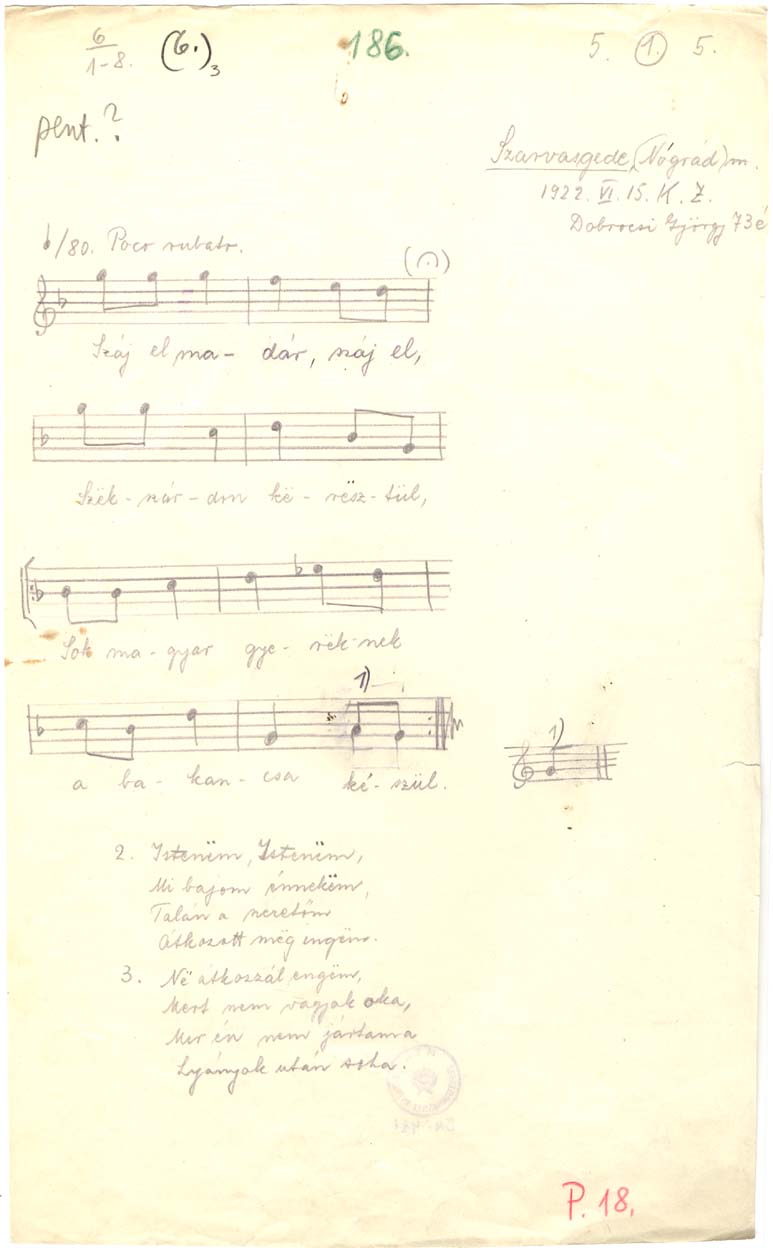 6/1-8. (6.)3 186. 5. (1.) 5.
pent.?
Szarvasgede, (Nógrád) m.
1922. VI. 15. K. Z.
Dobrocsi György 73 é
/80. Poco rubato.
Száj el ma- dár, száj el,
Szëk- szár- don kë- rësz- tül,
Sok ma- gyar gye- rëk- nek
1)
a ba- kan- csa ké- szül.
1)
2. Istenëm, Istenëm,
Mi bajom énnekëm,
Talán a szeretőm
Átkozott mëg engëm.
3. Në átkozzál engëm,
Mert nem vagyok oka,
Mer én nem jártam a
Lyányok után soha.
P. 18.